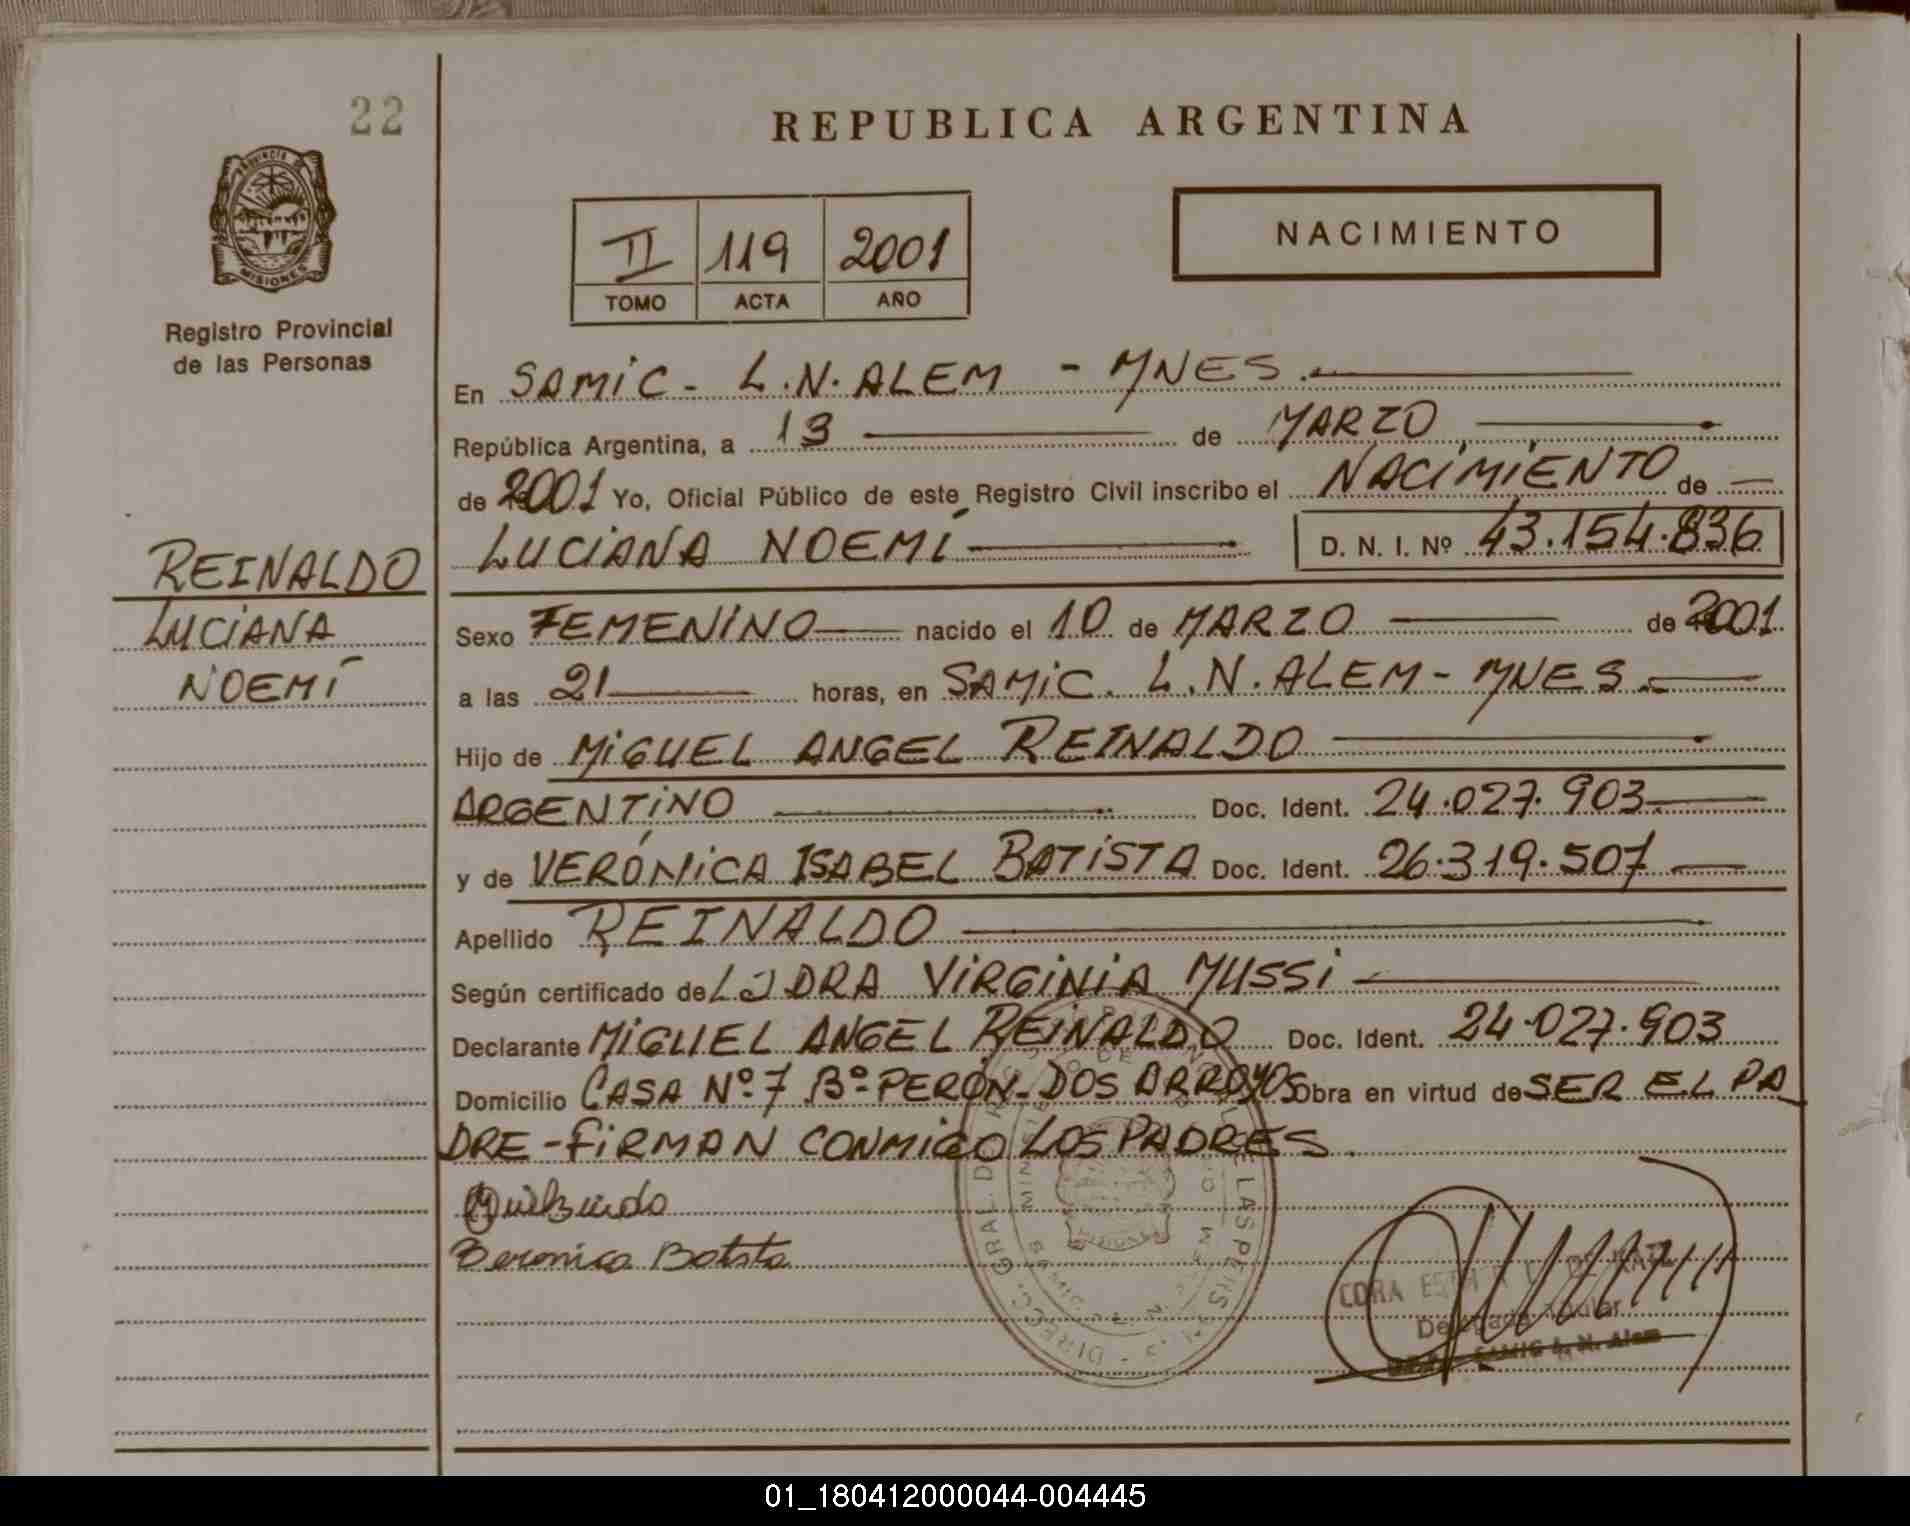 22
REPUBLICA ARGENTINA
PROVINCIA DE
MISIONES
Registro Provincial
de las Personas
II 119 2001
TOMO ACTA AÑO
NACIMIENTO
En SAMIC - L.N. ALEM - MNES.
República Argentina, a 13 de MARZO
de 2001 Yo, Oficial Público de este Registro Civil inscribo el NACIMIENTO de
LUCIANA NOEMÍ D. N. I. Nº 43.154.836
REINALDO
LUCIANA
NOEMÍ
Sexo FEMENINO nacido el 10 de MARZO de 2001
a las 21 horas, en SAMIC. L.N. ALEM - MNES.
Hijo de MIGUEL ANGEL REINALDO
ARGENTINO Doc. Ident. 24.027.903
y de VERÓNICA ISABEL BATISTA Doc. Ident. 26.319.507
Apellido REINALDO
Según certificado de DRA VIRGINIA MUSSI
Declarante MIGUEL ANGEL REINALDO Doc. Ident. 24.027.903
Domicilio CASA Nº 7 Bº PERÓN - DOS ARROYOS Obra en virtud de SER EL PA
DRE - FIRMAN CONMIGO LOS PADRES.
Beronica Batista
Delegada Titular
SAMIC L. N. Alem
01_180412000044-004445